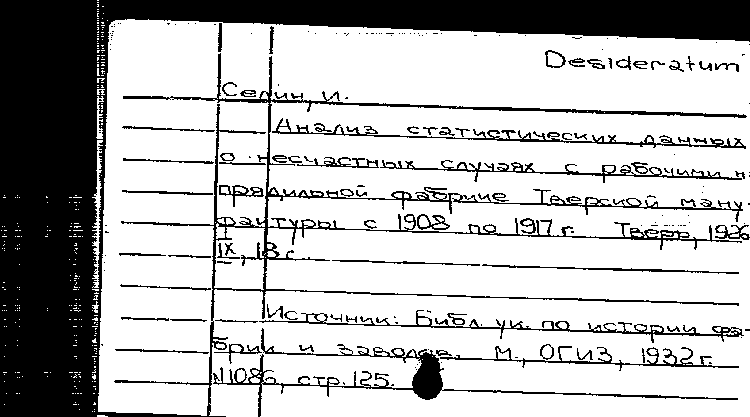 Desideratum
Селин, И.
Анализ статистических данных
о несчастных случаях с рабочими н
прядильной фабрике Тверской ману-
фактуры с 1908 по 1917 г. Тверь, 1926
IX, 18 с.
Источник: Библ. ук. по истории фа-
брик и заводов. М., ОГИЗ, 1932 г.
№1086, стр. 125.